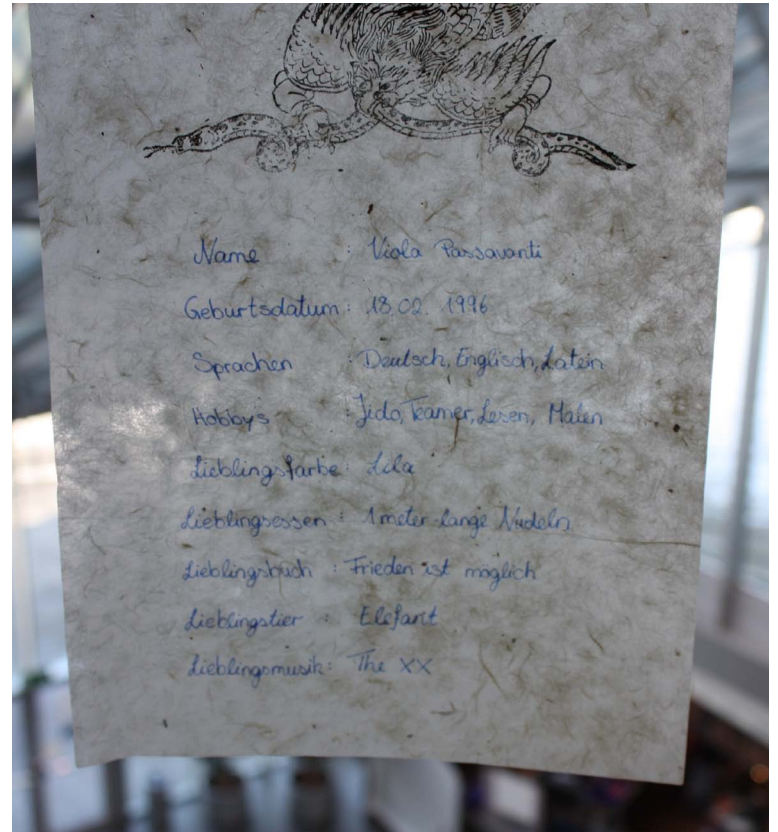 Name : Viola Passavanti
Geburtsdatum : 18.02. 1996
Sprachen : Deutsch, Englisch, Latein
Hobbys : Judo, Teamer, Lesen, Malen
Lieblingsfarbe : Lila
Lieblingsessen : 1meter lange Nudeln
Lieblingsbuch : Frieden ist möglich
Lieblingstier : Elefant
Lieblingsmusik : The XX